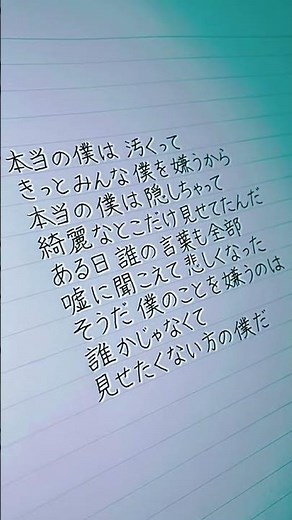 本当の僕は 汚くって
きっとみんな僕を嫌うから
本当の僕は隠しちゃって
綺麗なとこだけ見せてたんだ
ある日 誰の言葉も全部
嘘に聞こえて 悲しくなった
そうだ 僕のことを嫌うのは
誰かじゃなくて
見せたくない方の僕だ